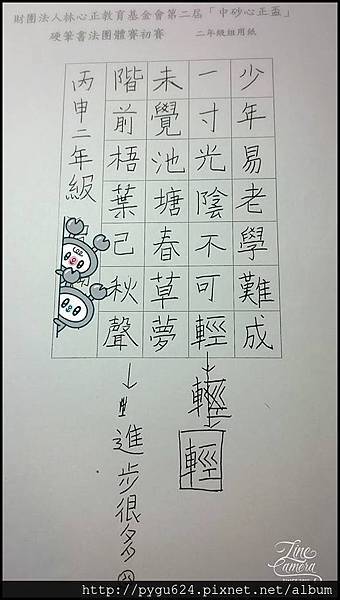 財團法人林心正教育基金會第二屆「中砂心正盃」
硬筆書法團體賽初賽 二年級組用紙
少年易老學難成
一寸光陰不可輕
未覺池塘春草夢
階前梧葉已秋聲
丙申二年級
輕
輕
進步很多
Line
CAMERA
http://pygu624.pixnet.net/album